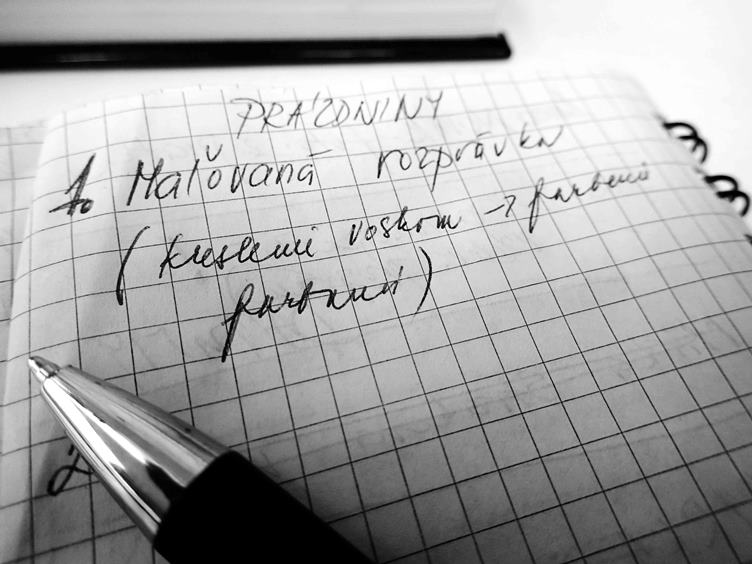 PRÁZDNINY
1. Maľovaná rozprávka
(kreslení voskom → farbení
farbami)
2